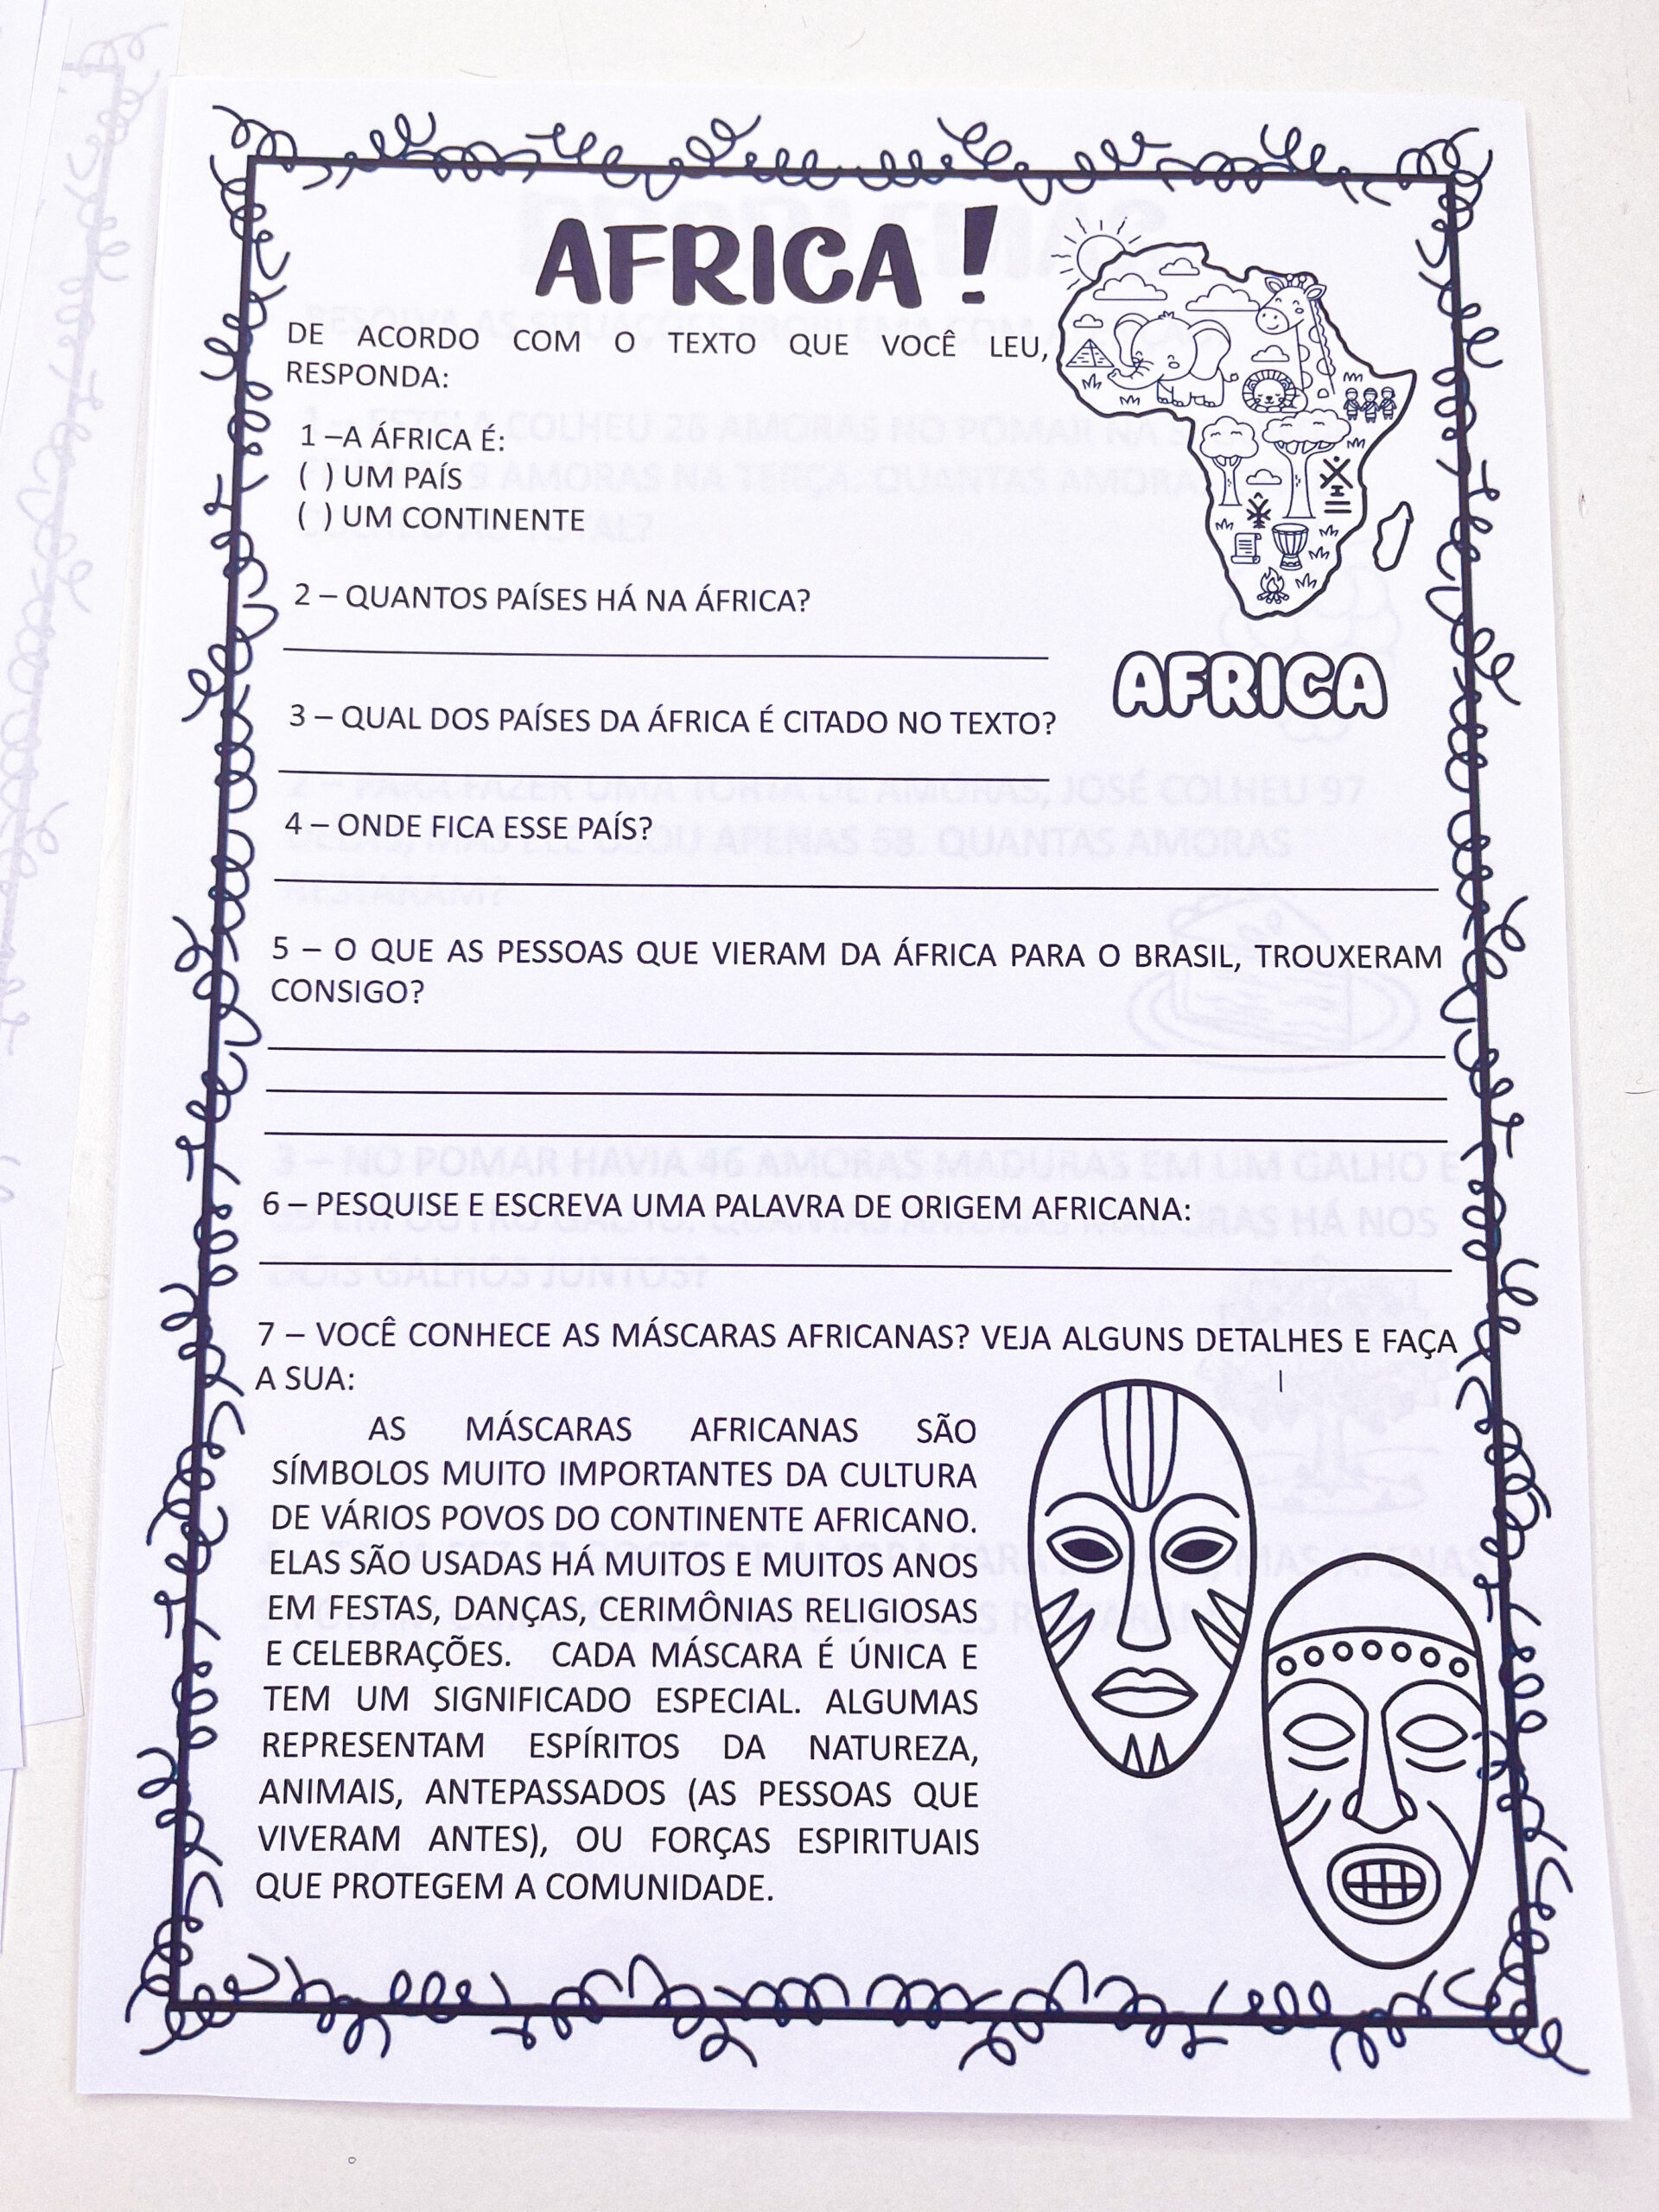 AFRICA !
DE ACORDO COM O TEXTO QUE VOCÊ LEU,
RESPONDA:
1 –A ÁFRICA É:
( ) UM PAÍS
( ) UM CONTINENTE
2 – QUANTOS PAÍSES HÁ NA ÁFRICA?
AFRICA
3 – QUAL DOS PAÍSES DA ÁFRICA É CITADO NO TEXTO?
4 – ONDE FICA ESSE PAÍS?
5 – O QUE AS PESSOAS QUE VIERAM DA ÁFRICA PARA O BRASIL, TROUXERAM
CONSIGO?
6 – PESQUISE E ESCREVA UMA PALAVRA DE ORIGEM AFRICANA:
7 – VOCÊ CONHECE AS MÁSCARAS AFRICANAS? VEJA ALGUNS DETALHES E FAÇA
A SUA:
AS MÁSCARAS AFRICANAS SÃO
SÍMBOLOS MUITO IMPORTANTES DA CULTURA
DE VÁRIOS POVOS DO CONTINENTE AFRICANO.
ELAS SÃO USADAS HÁ MUITOS E MUITOS ANOS
EM FESTAS, DANÇAS, CERIMÔNIAS RELIGIOSAS
E CELEBRAÇÕES. CADA MÁSCARA É ÚNICA E
TEM UM SIGNIFICADO ESPECIAL. ALGUMAS
REPRESENTAM ESPÍRITOS DA NATUREZA,
ANIMAIS, ANTEPASSADOS (AS PESSOAS QUE
VIVERAM ANTES), OU FORÇAS ESPIRITUAIS
QUE PROTEGEM A COMUNIDADE.